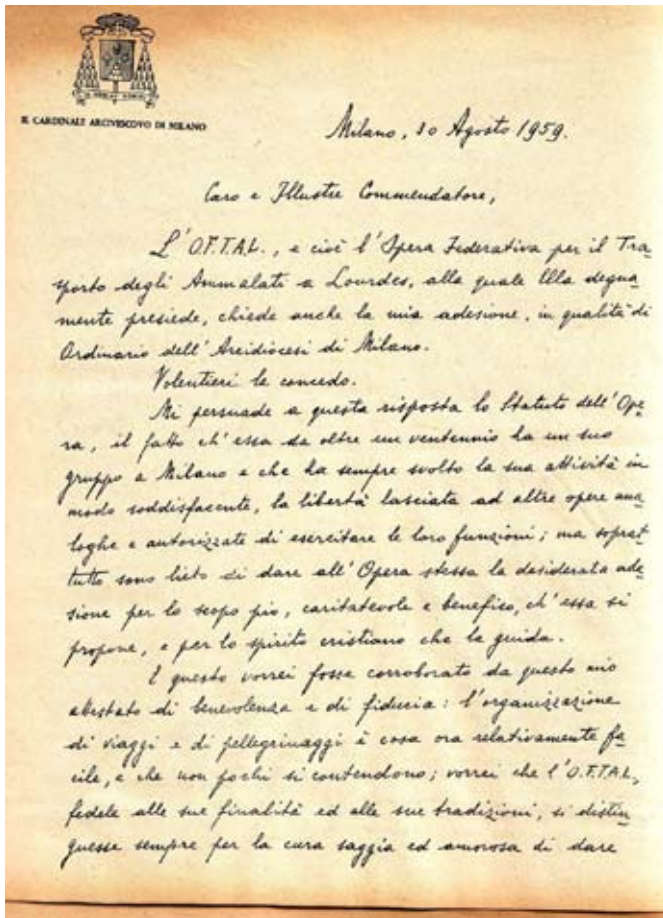 IL CARDINALE ARCIVESCOVO DI MILANO
Milano, 10 Agosto 1959.
Caro e Illustre Commendatore,
L'O.F.T.A.L., e cioè l'Opera Federativa per il Tra-
sporto degli Ammalati a Lourdes, alla quale Ella degna-
mente presiede, chiede anche la mia adesione, in qualità di
Ordinario dell'Arcidiocesi di Milano.
Volentieri la concedo.
Mi persuade a questa risposta lo Statuto dell'Ope-
ra, il fatto ch'essa da oltre un ventennio ha un suo
gruppo a Milano e che ha sempre svolto la sua attività in
modo soddisfacente, la libertà lasciata ad altre opere ana-
loghe e autorizzate di esercitare le loro funzioni; ma soprat-
tutto sono lieto di dare all'Opera stessa la desiderata ade-
sione per lo scopo pio, caritatevole e benefico, ch'essa si
propone, e per lo spirito cristiano che la guida.
E questo vorrei fosse corroborato da questo mio
attestato di benevolenza e di fiducia: l'organizzazione
di viaggi e di pellegrinaggi è cosa ora relativamente fa-
cile, e che non pochi si contendono; vorrei che l'O.F.T.A.L.,
fedele alle sue finalità ed alle sue tradizioni, si distin-
guesse sempre per la cura saggia ed amorosa di dare